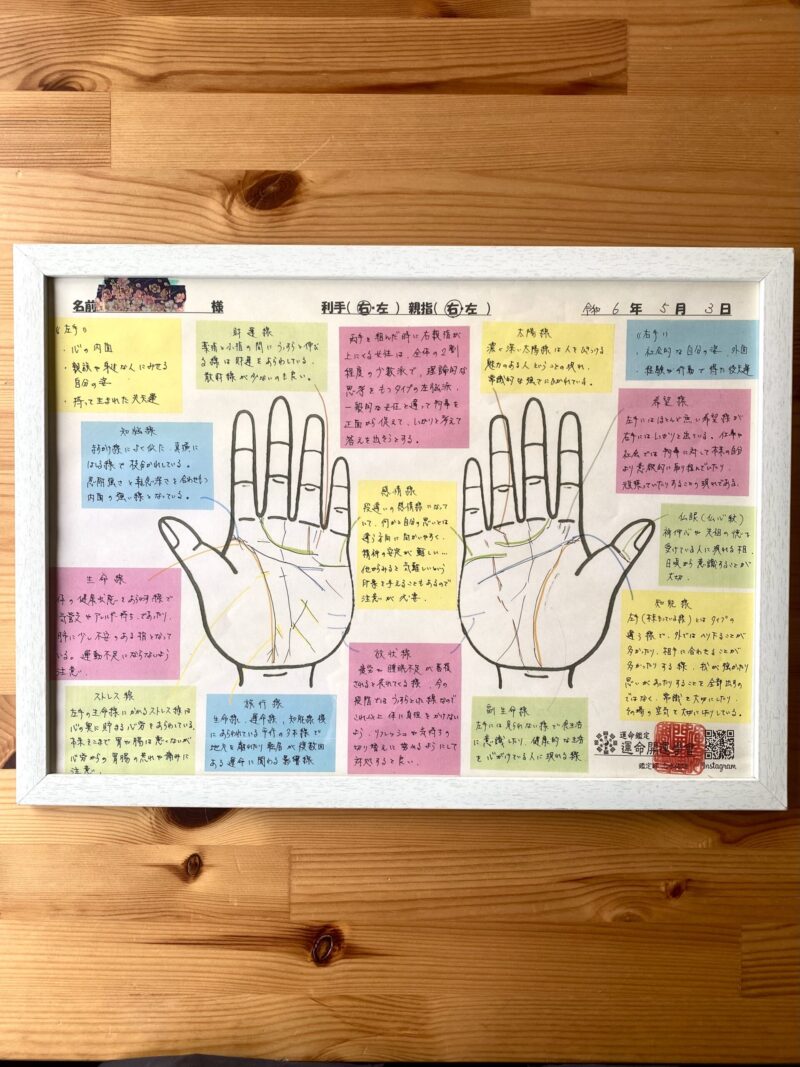 名前
様
利手(右・左) 親指(右・左)
令和 6 年 5 月 3 日
《左手》
・心の内面
・親族や身近な人にみせる
自分の姿
・持って生まれた先天運
財運線
薬指と小指の間にうっすらと伸び
る線は財運をあらわしている。
散財線が少ないのも良い。
両手を組んだ時に右親指が
上にくる女性は、全体の2割
程度の少数派で、理論的な
思考をもつタイプの左脳派。
一般的な女性と違って物事を
正面から捉えて、しっかりと考えて
答えを出そうとする。
太陽線
濃く深い太陽線は人をひきつける
魅力のある人ということの現れ。
《右手》
・社会的な自分の姿、外面
・経験や行動で得た後天運
知脳線
内面の強い線となっている。
希望線
左手にはほとんど無い希望線が
右手にはしっかりと出ている。仕事や
社会では物事に対して本来の自分
より意欲的に取り組んでいたり、
頑張っていたりすることの現れである。
感情線
段違いの感情線になって
いて、何かと自分の思いとは
違う方向に向かいやすく、
精神の安定が難しい…
他からみると気難しいという
印象を与えることもあるので
注意が必要。
仏眼(仏心紋)
神仏や先祖の使いを
受けている人に現れる相。
日頃から意識することが
大切。
生命線
体の健康状態をあらわす線で
気管支やアレルギー持ちであったり、
肺に少し不安のある相となって
いる。運動不足にならないよう
注意。
知能線
左手(本来もっている線)とはタイプの
違う線で、外では
線。我が強かったり
思いがあったりすることを全部出すの
ではなく、常識を大切にしたり、
その場の空気を大切にしたりしている。
ストレス線
左手の生命線にかかるストレス線は
心の奥に貯まる心労をあらわしている。
本来そこまで胃や腸は悪くないが
心労からの胃腸の荒れや痛みに
注意。
旅行線
生命線、運命線、知能線後
にあらわれている
地元を離れたり転居が複数回
ある運命に関わる影響線
放縦線
疲労や睡眠不足が蓄積
されると表れてくる線。今の
段階ではうっすらと小線なので
これ以上体に負担をかけない
よう、リフレッシュや気持ちの
切り替えに努めるようにして
対処すると良い。
副生命線
左手には見られない線で食生活
に意識したり、健康的な生活
を心がけている人に現れる線
運命鑑定
運命開運
鑑定師
Instagram